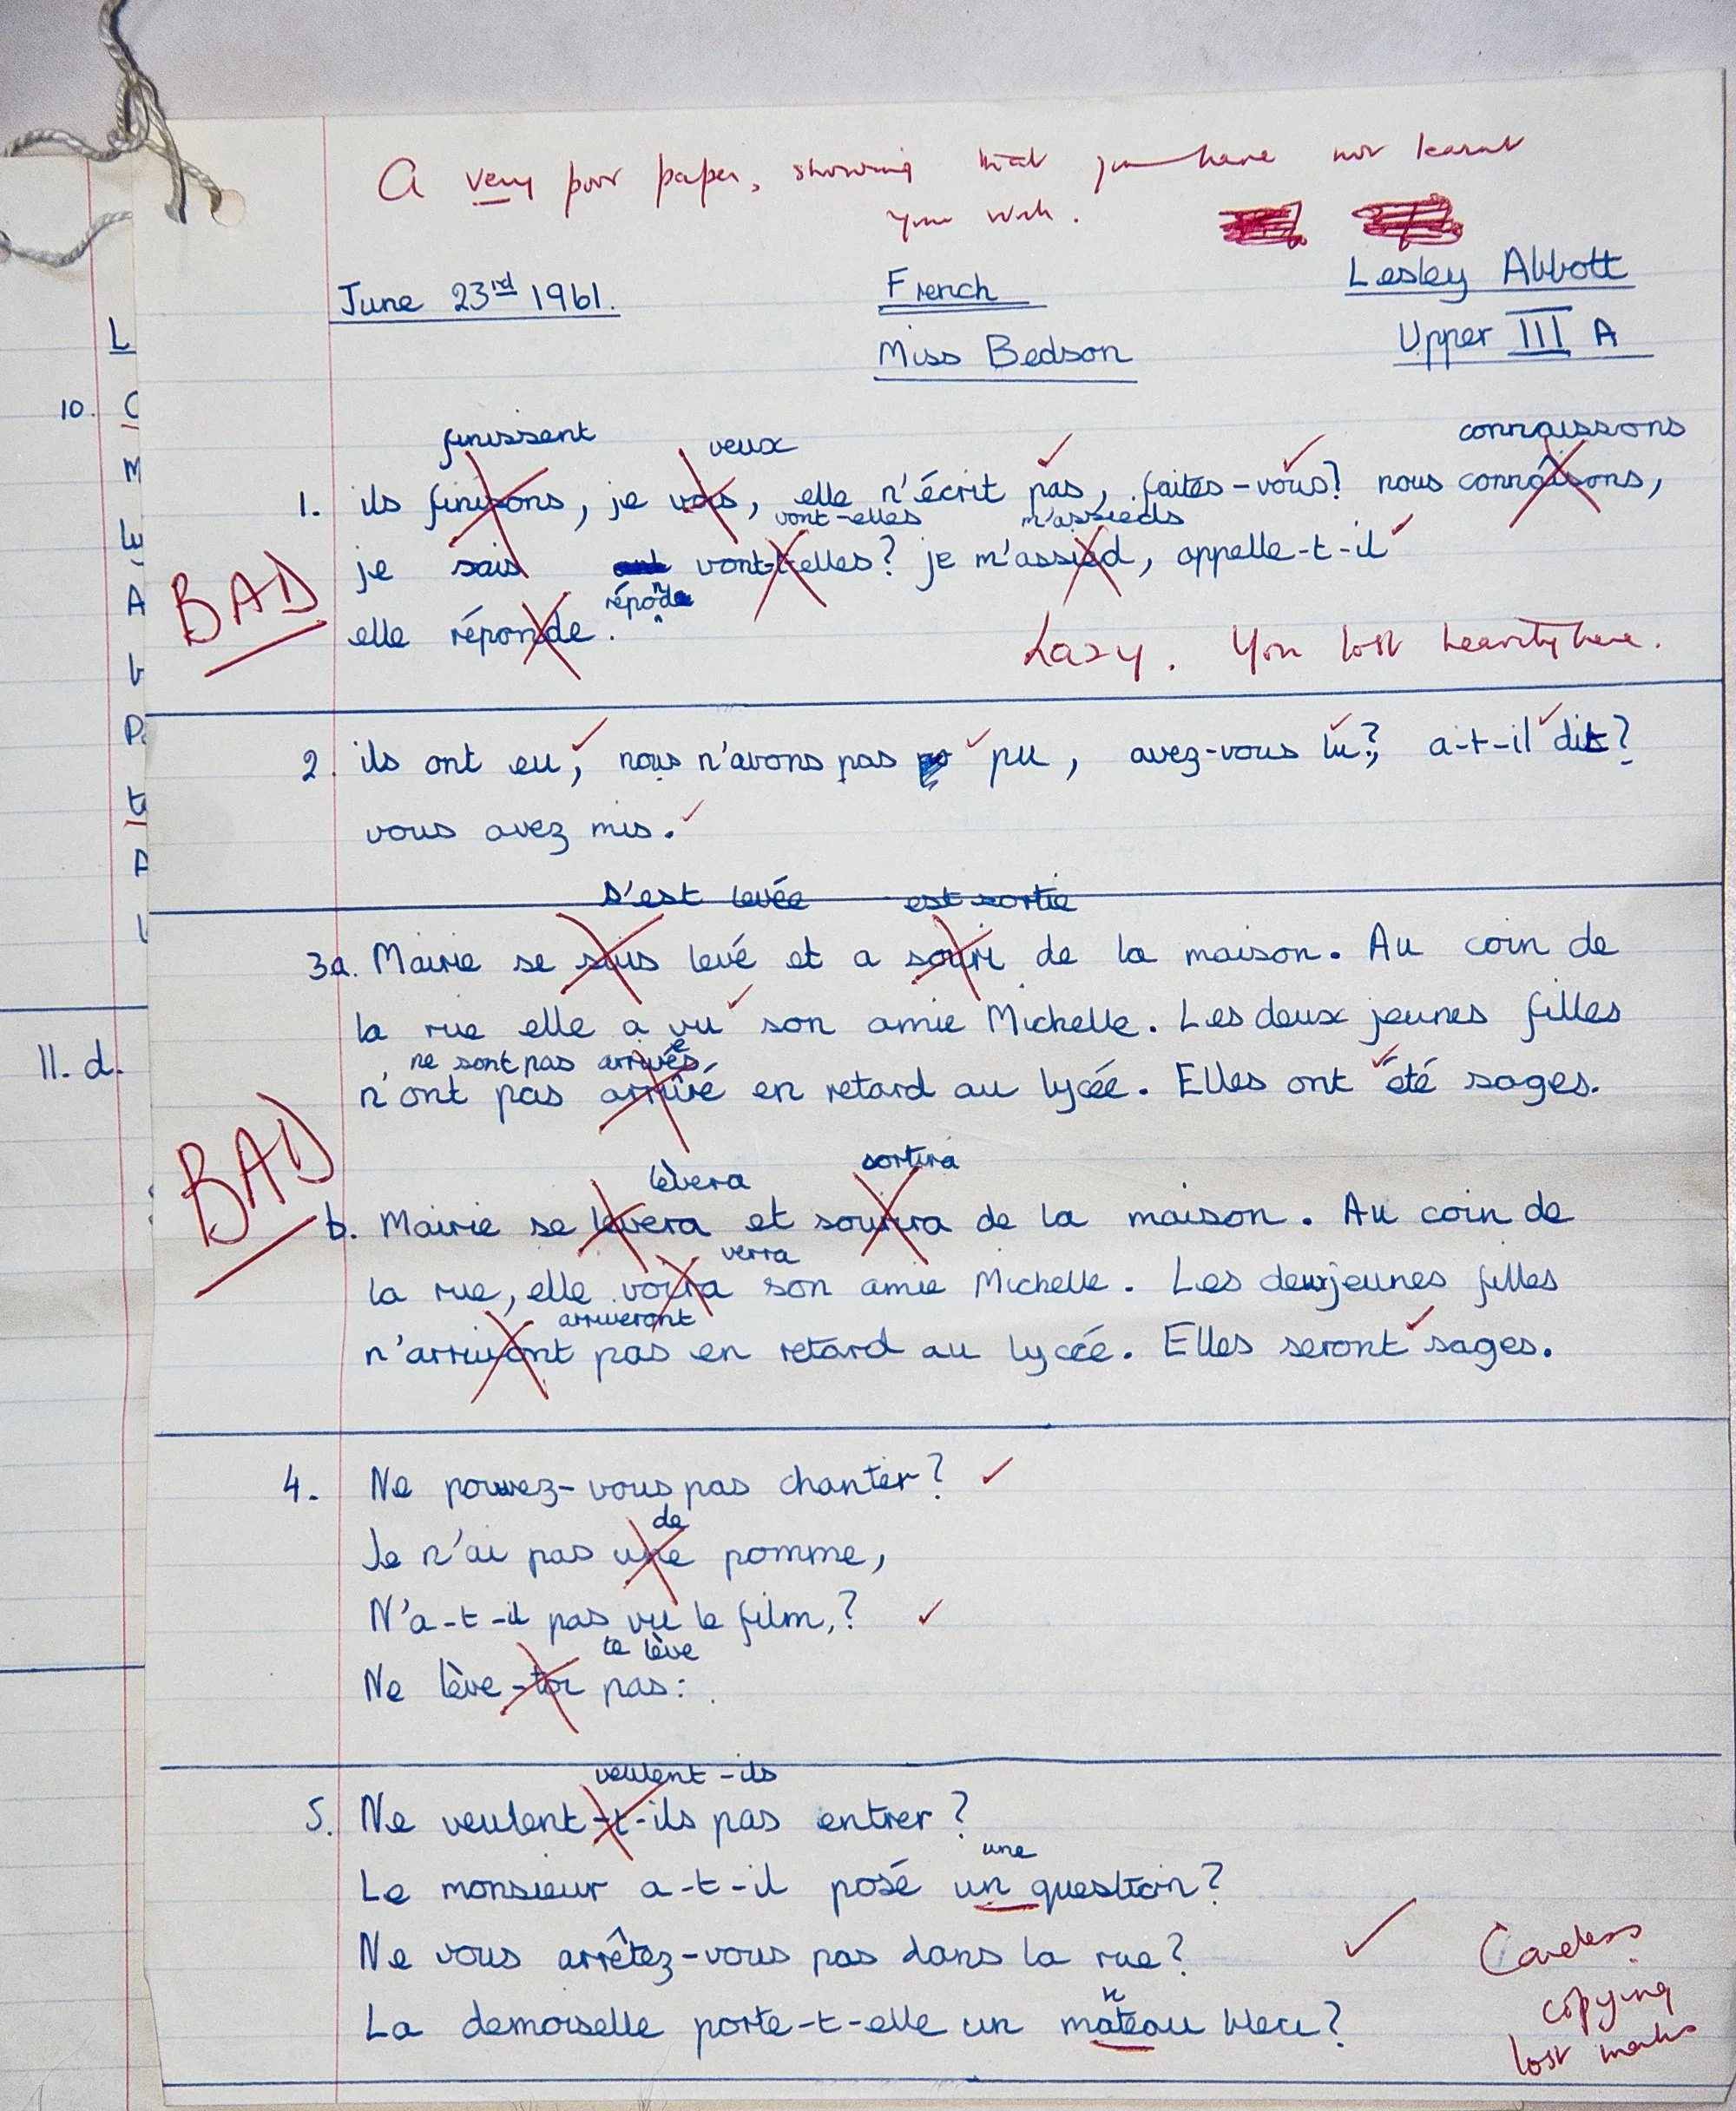 A very poor paper, showing that you have not learnt
your work.
June 23rd 1961.
French
Lesley Abbott
Miss Bedson
Upper III A
L
10. C
M
A
P
A
11. d.
finissent veux connaissons
1. ils finisons, je vois, elle n'écrit pas, faites-vous? nous connaîsons,
vont-elles m'assieds
je sais vont-t-elles? je m'assied, appelle-t-il
BAD
réponde
elle réponde.
Lazy. You lost heavily here.
2. ils ont eu, nous n'avons pas pu, avez-vous lu? a-t-il dit?
vous avez mis.
s'est levée est sortie
3a. Mairie se suis levé et a souri de la maison. Au coin de
la rue elle a vu son amie Michelle. Les deux jeunes filles
ne sont pas arrivées
n'ont pas arrivé en retard au lycée. Elles ont été sages.
BAD
lèvera sortira
b. Mairie se levera et sourira de la maison. Au coin de
verra
la rue, elle voira son amie Michelle. Les deux jeunes filles
arriveront
n'arrivont pas en retard au lycée. Elles seront sages.
4. Ne pouvez-vous pas chanter?
de
Je n'ai pas une pomme,
N'a-t-il pas vu le film,?
te lève
Ne lève-toi pas:
veulent-ils
5. Ne veulent-t-ils pas entrer?
une
Le monsieur a-t-il posé un question?
Ne vous arrêtez-vous pas dans la rue?
n
La demoiselle porte-t-elle un mateau bleu?
Careless
copying
lost marks